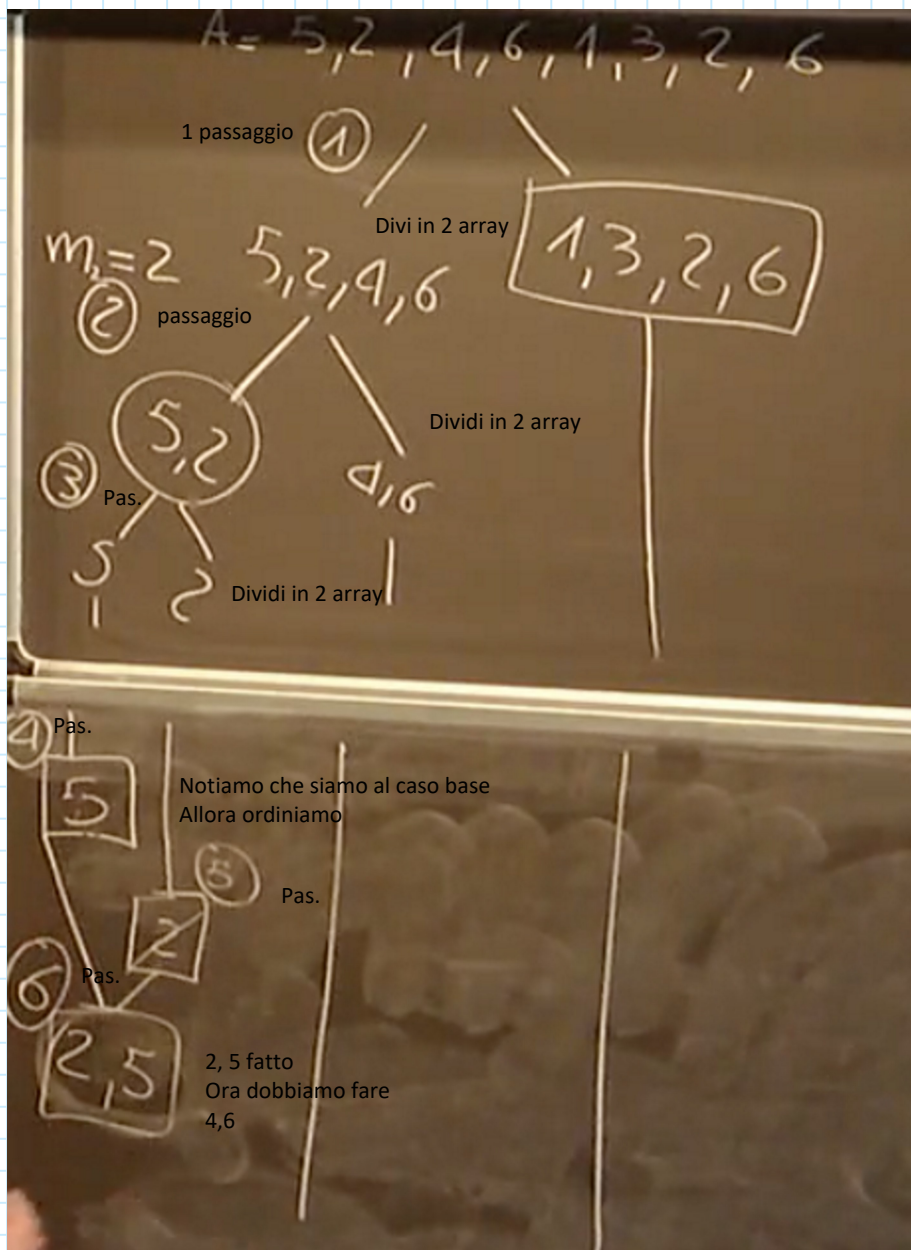 A = 5,2,4,6,1,3,2,6
1 passaggio ①
Divi in 2 array
1,3,2,6
m₂=2 5,2,4,6
② passaggio
5,2
Dividi in 2 array
4,6
③ Pas.
5 2 Dividi in 2 array
④ Pas.
5
Notiamo che siamo al caso base
Allora ordiniamo
⑤ Pas.
2
⑥ Pas.
2,5
2, 5 fatto
Ora dobbiamo fare
4,6